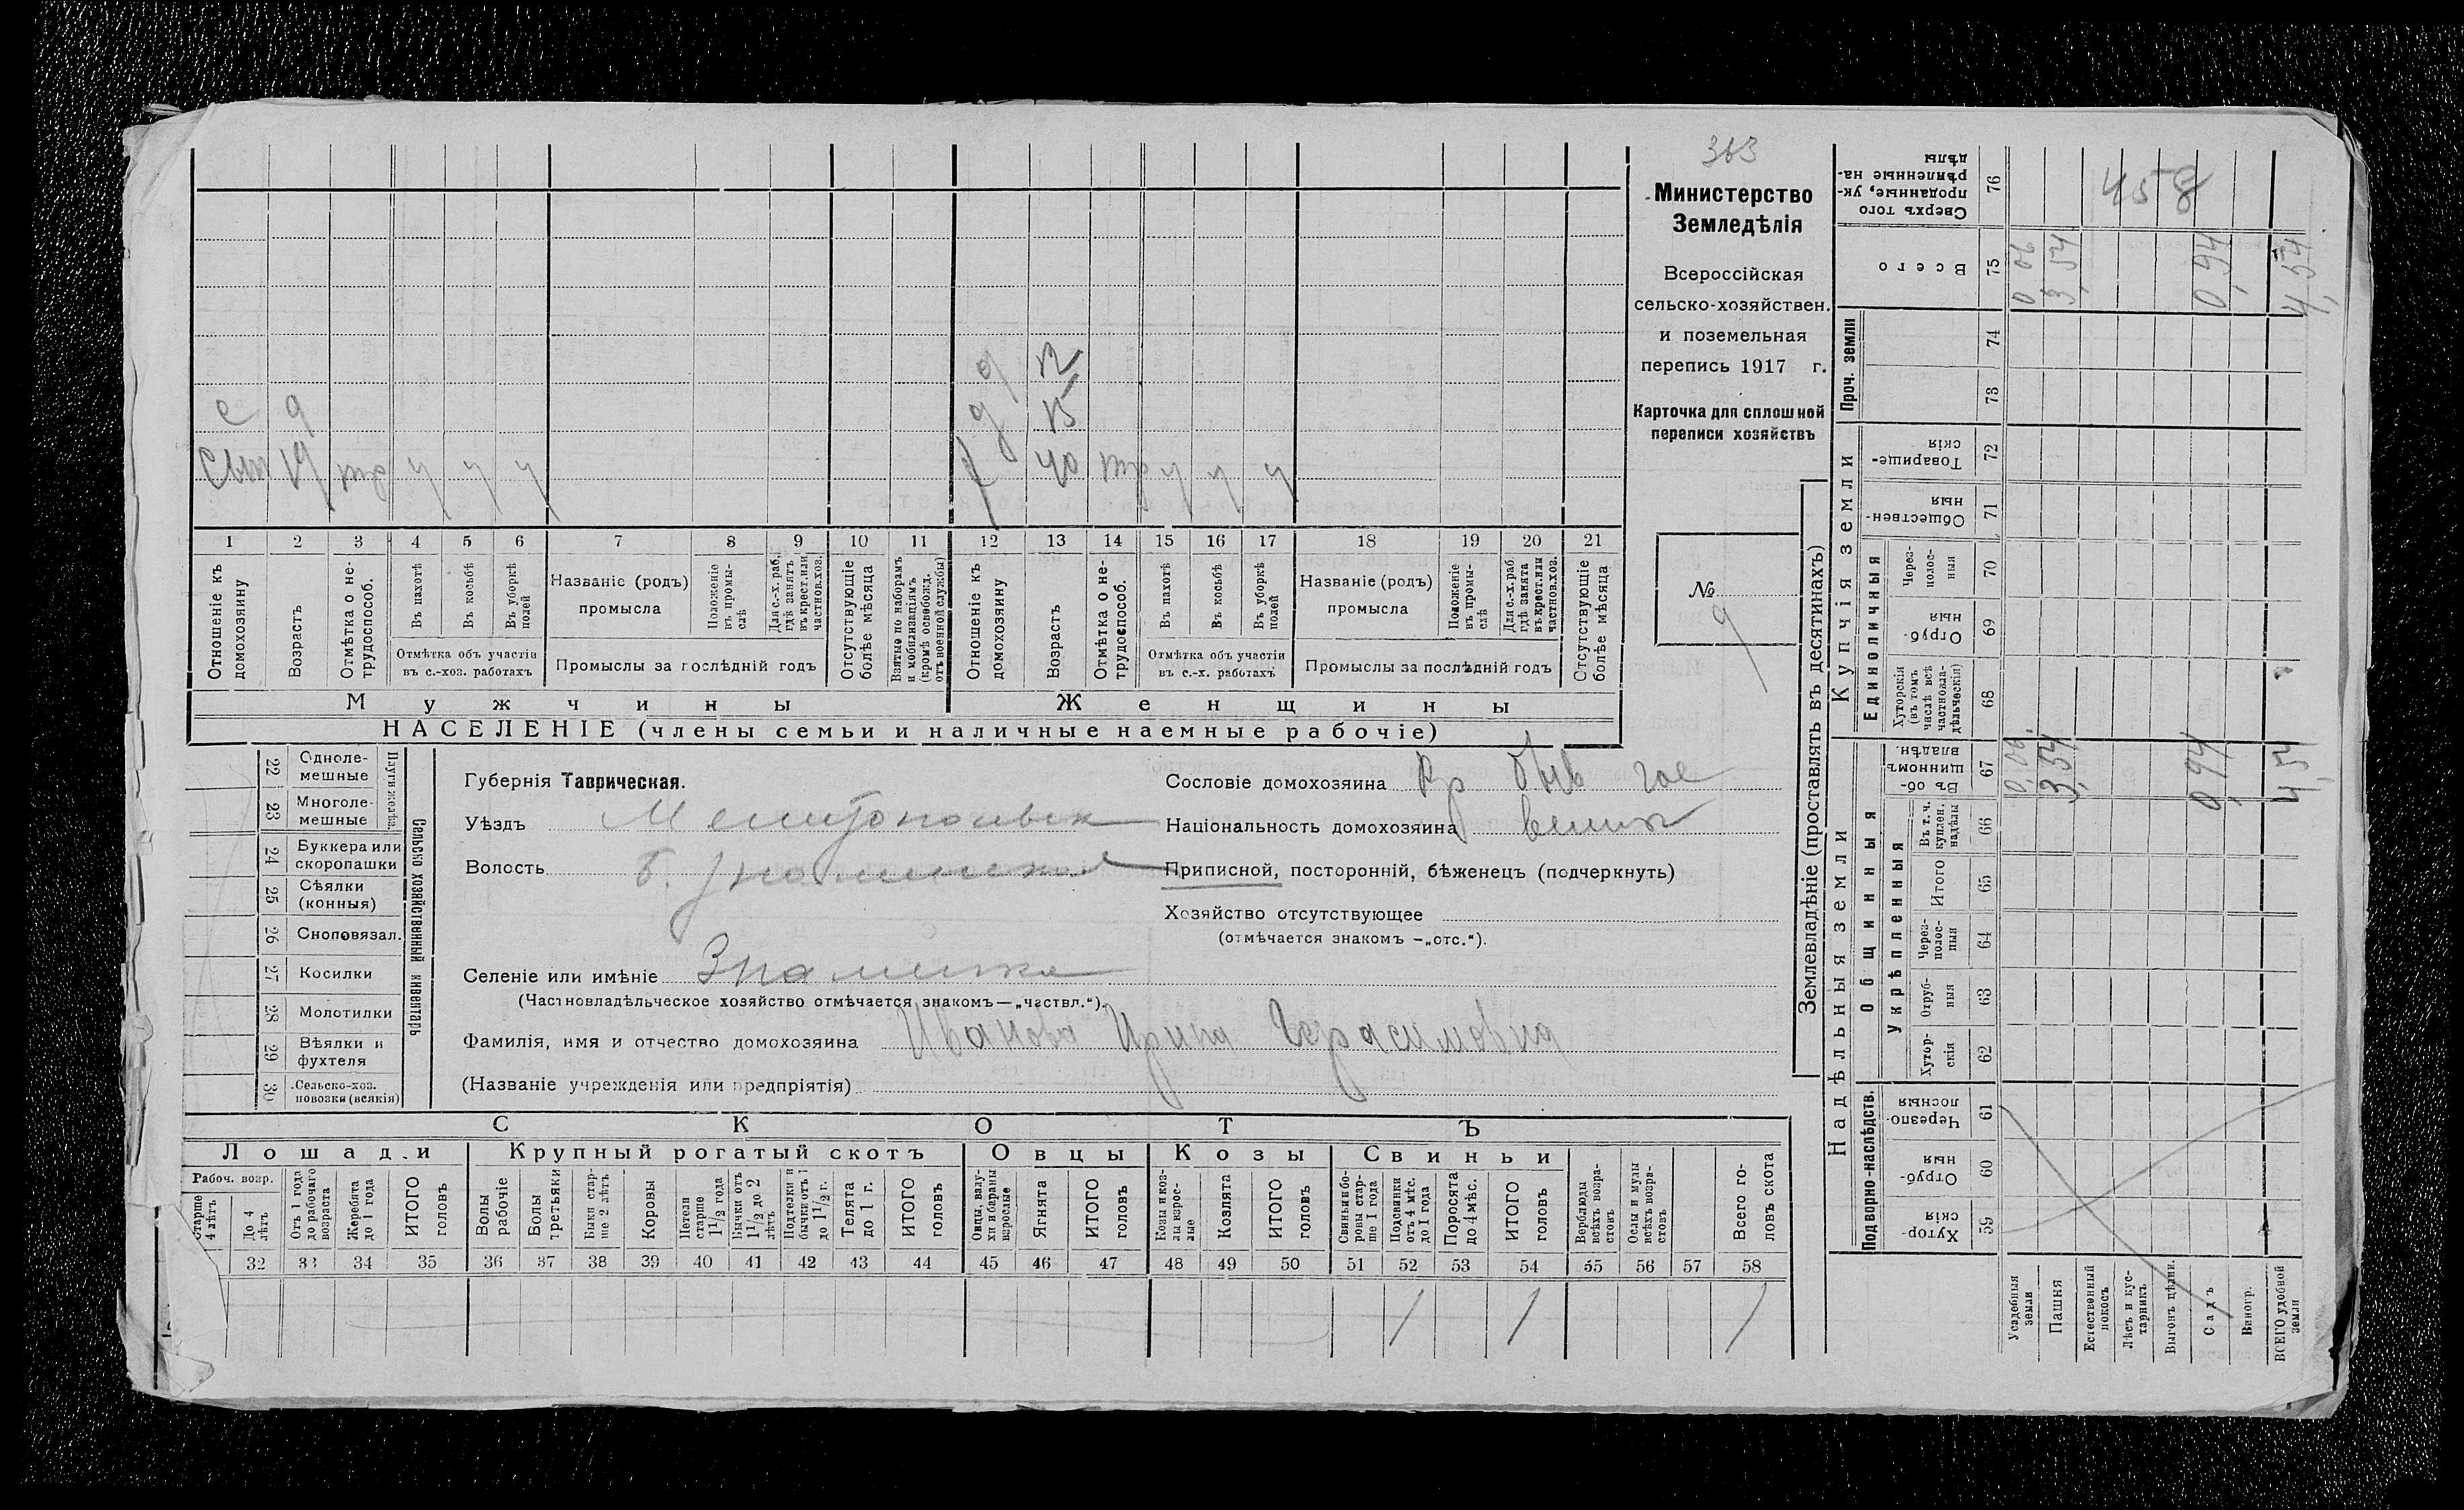 363
Министерство
Земледѣлія
Всероссійская
сельско-хозяйствен.
и поземельная
перепись 1917 г.
Карточка для сплошной
переписи хозяйствъ
№ 9
д 12
с 9 д 15
Сын 19 ч ч ч 40 ч ч ч
1 2 3 4 5 6 7 8 9 10 11 12 13 14 15 16 17 18 19 20 21
Отношеніе къ домохозяину
Возрастъ
Отмѣтка о не-трудоспособ.
Въ пахотѣ
Въ косьбѣ
Въ уборкѣ полей
Отмѣтка объ участіи въ с.-хоз. работахъ
Названіе (родъ) промысла
Положеніе въ промы-слѣ
Для с.-х. раб., гдѣ занятъ въ крест. или частновл. хоз.
Промыслы за послѣдній годъ
Отсутствующіе болѣе мѣсяца
Взятые по наборамъ и мобилизаціямъ (кромѣ освобожд. отъ военной службы)
Отношеніе къ домохозяину
Возрастъ
Отмѣтка о не-трудоспособ.
Въ пахотѣ
Въ косьбѣ
Въ уборкѣ полей
Отмѣтка объ участіи въ с.-х. работахъ
Названіе (родъ) промысла
Положеніе въ промы-слѣ
Для с.-х. раб. гдѣ занята въ крест. или частнов. хоз.
Промыслы за послѣдній годъ
Отсутствующіе болѣе мѣсяца
Мужчины Женщины
НАСЕЛЕНІЕ (члены семьи и наличные наемные рабочіе)
22 Одноле-мешные
23 Многоле-мешные
Плуги желѣзн.
24 Буккера или скоропашки
25 Сѣялки (конныя)
26 Сноповязал.
27 Косилки
28 Молотилки
29 Вѣялки и фухтеля
30 Сельско-хоз. повозки (всякія)
Сельско хозяйственный инвентарь
Губернія Таврическая.
Уѣздъ Мелитопольск
Волость Б. Знаменская
Селеніе или имѣніе Знаменка
(Частновладѣльческое хозяйство отмѣчается знакомъ—„частвл.“).
Фамилія, имя и отчество домохозяина Иванова Ирина Герасимовна
(Названіе учрежденія или предпріятія)
Сословіе домохозяина Кр быв гос
Національность домохозяина велик
Приписной, посторонній, бѣженецъ (подчеркнуть)
Хозяйство отсутствующее
(отмѣчается знакомъ —„отс.“).
СКОТЪ
Лошади Крупный рогатый скотъ Овцы Козы Свиньи
Рабоч. возр.
Старше 4 лѣтъ
До 4 лѣтъ
Отъ 1 года до рабочаго возраста
Жеребята до 1 года
ИТОГО головъ
Волы рабочіе
Волы третьяки
Быки стар-ше 2 лѣтъ
Коровы
Нетели старше 1½ года
Бычки отъ 1½ до 2 лѣтъ
Подтелки и бычки отъ 1 до 1½ г.
Телята до 1 г.
ИТОГО головъ
Овцы, валу-хи и бараны взрослые
Ягнята
ИТОГО головъ
Козы и коз-лы взрос-лые
Козлята
ИТОГО головъ
Свиньи и бо-ровы стар-ше 1 года
Подсвинки отъ 4 мѣс. до 1 года
Поросята до 4 мѣс.
ИТОГО головъ
Верблюды всѣхъ возра-стовъ
Ослы и мулы всѣхъ возра-стовъ
Всего го-ловъ скота
32 33 34 35 36 37 38 39 40 41 42 43 44 45 46 47 48 49 50 51 52 53 54 55 56 57 58
1 1 1
Землевладѣніе (проставлять въ десятинахъ)
Надѣльныя земли
Купчія земли
Проч. земли
Подворно-наслѣдств.
Общинныя
Укрѣпленныя
Единоличныя
Сверхъ того проданные, ук-рѣпленные на-дѣлы 76 458
Всего 75 0,06 3,54 0,94 4,54
74
73
Товарище-скія 72
Обществен-ныя 71
Через-полос-ныя 70
Отруб-ныя 69
Хуторскія (въ томъ числѣ всѣ частновла-дѣльческія) 68
Въ об-щинномъ владѣн. 67 0,06 3,54 0,94 4,54
Въ т. ч. куплен. надѣлы 66
Итого 65
Через-полос-ныя 64
Отруб-ныя 63
Хутор-скія 62
Черезпо-лосныя 61
Отруб-ныя 60
Хутор-скія 59
Усадебныя земли
Пашня
Естественный покосъ
Лѣсъ и кус-тарникъ
Выгонъ цѣлин.
Садъ
Виногр.
ВСЕГО удобной земли